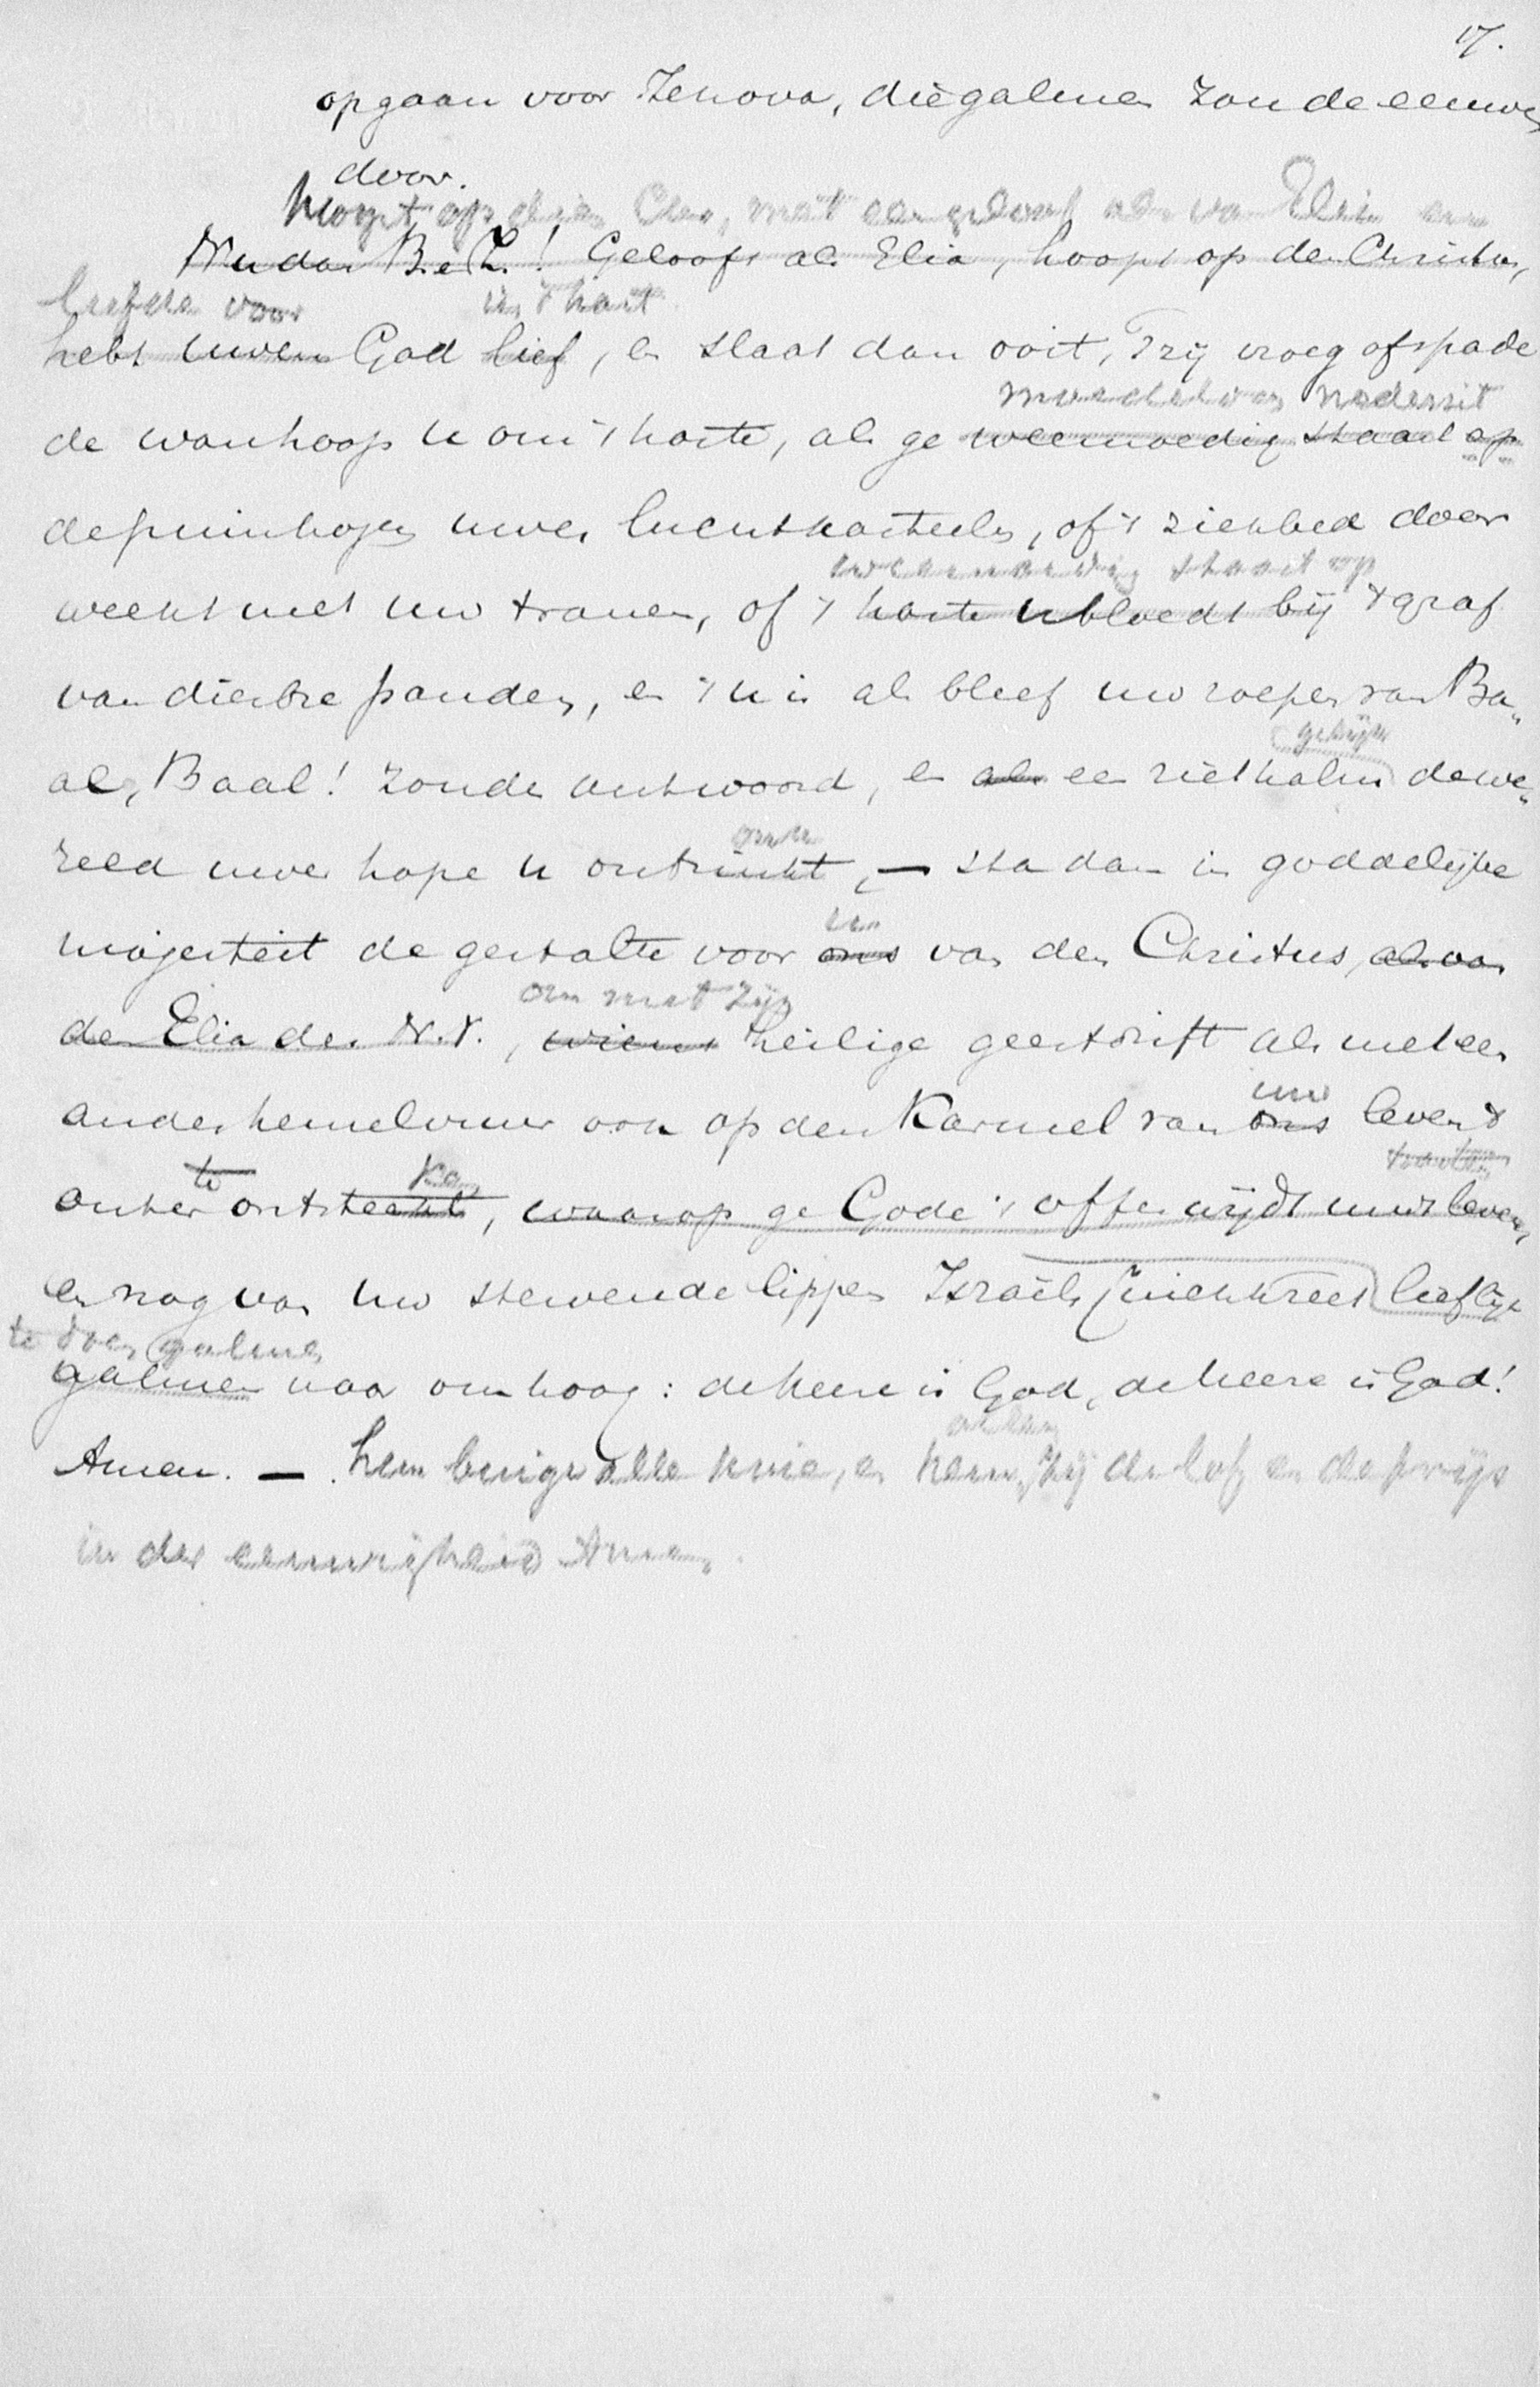 17.
opgaan voor Jehova, die galmen zou de eeuwen
door.
Hoopt op dien Chr, met een geloof als van Elia en
Nu dan B.e.Z.! Gelooft als Elia, hoopt op den Christus,
liefde voor in 't hart
hebt uwen God lief, en slaat dan ooit, 't zij vroeg of spade
moedeloos nederzit
de wanhoop u om 't harte, als ge weemoedig staart op
de puinhopen uwer luchtkasteelen, of 't ziekbed door
weemoedig staart op
weekt met uw tranen, of 't harte u bloedt bij 't graf
van dierbre panden, en 't u is als bleef uw roepen van Ba„
gelijk
al, Baal! zonder antwoord, en als een riethalm de we„
reld uwer hope u ontzinkt, — sta dan in goddelijke
uw
majesteit de gestalte voor ons van den Christus, als van
om met zijn
den Elia des N.T., wiens heilige geestdrift als met een
uw
ander hemelvuur ook op den Karmel van ons leven 't
te
outer ontsteekt, waarop ge Gode 't offer wijdt uws levens,
en nog van uw stervende lippen Israëls juichkreet lieflijk
te doen galmen
galmen naar omhoog: de Heere is God, de Heere is God!
Amen. — hem buige alle knie, en hem zij de lof en de prijs
in der eeuwigheid Amen.